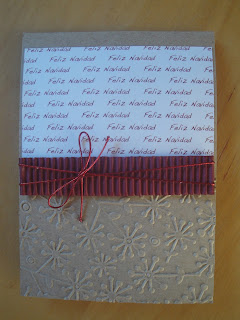 Feliz Navidad Feliz Navidad Feliz Navidad
Navidad Feliz Navidad Feliz Navidad Feliz
Feliz Navidad Feliz Navidad Feliz Navidad
Navidad Feliz Navidad Feliz Navidad Feliz
Feliz Navidad Feliz Navidad Feliz Navidad
Navidad Feliz Navidad Feliz Navidad Feliz
Feliz Navidad Feliz Navidad Feliz Navidad
Navidad Feliz Navidad Feliz Navidad Feliz
Feliz Navidad Feliz Navidad Feliz Navidad
Navidad Feliz Navidad Feliz Navidad Feliz